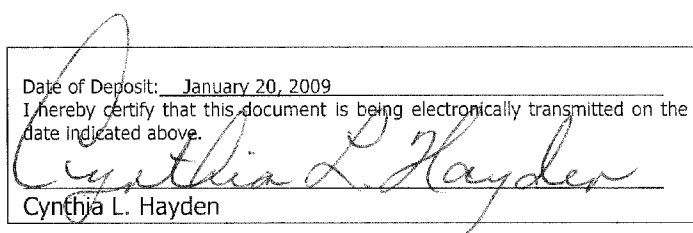 Date of Deposit: January 20, 2009
I hereby certify that this document is being electronically transmitted on the
date indicated above.
Cynthia L. Hayden
Cynthia L. Hayden